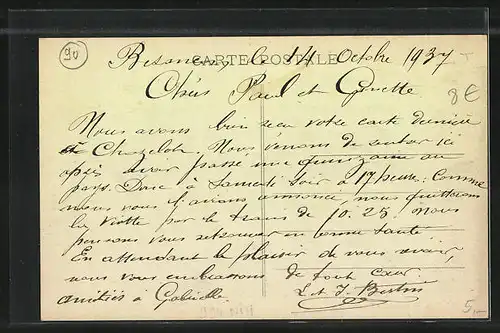 90
CARTE POSTALE
Besançon, le 14 Octobre 1937
8€
Chers Paul et Ginette
Nous avons bien reçu votre carte dernière
Chazelot. Nous venons de rentrer ici
après avoir passé une quinzaine au
pays. Donc à Samedi soir à 17 heures. Comme
nous vous l'avions annoncé, nous quitterons
la Viotte par le train de 10.25. Nous
pensons vous retrouver en bonne santé
En attendant le plaisir de vous revoir,
nous vous embrassons de tout cœur
amitiés à Gabrielle. L et J. Bertin
5,-